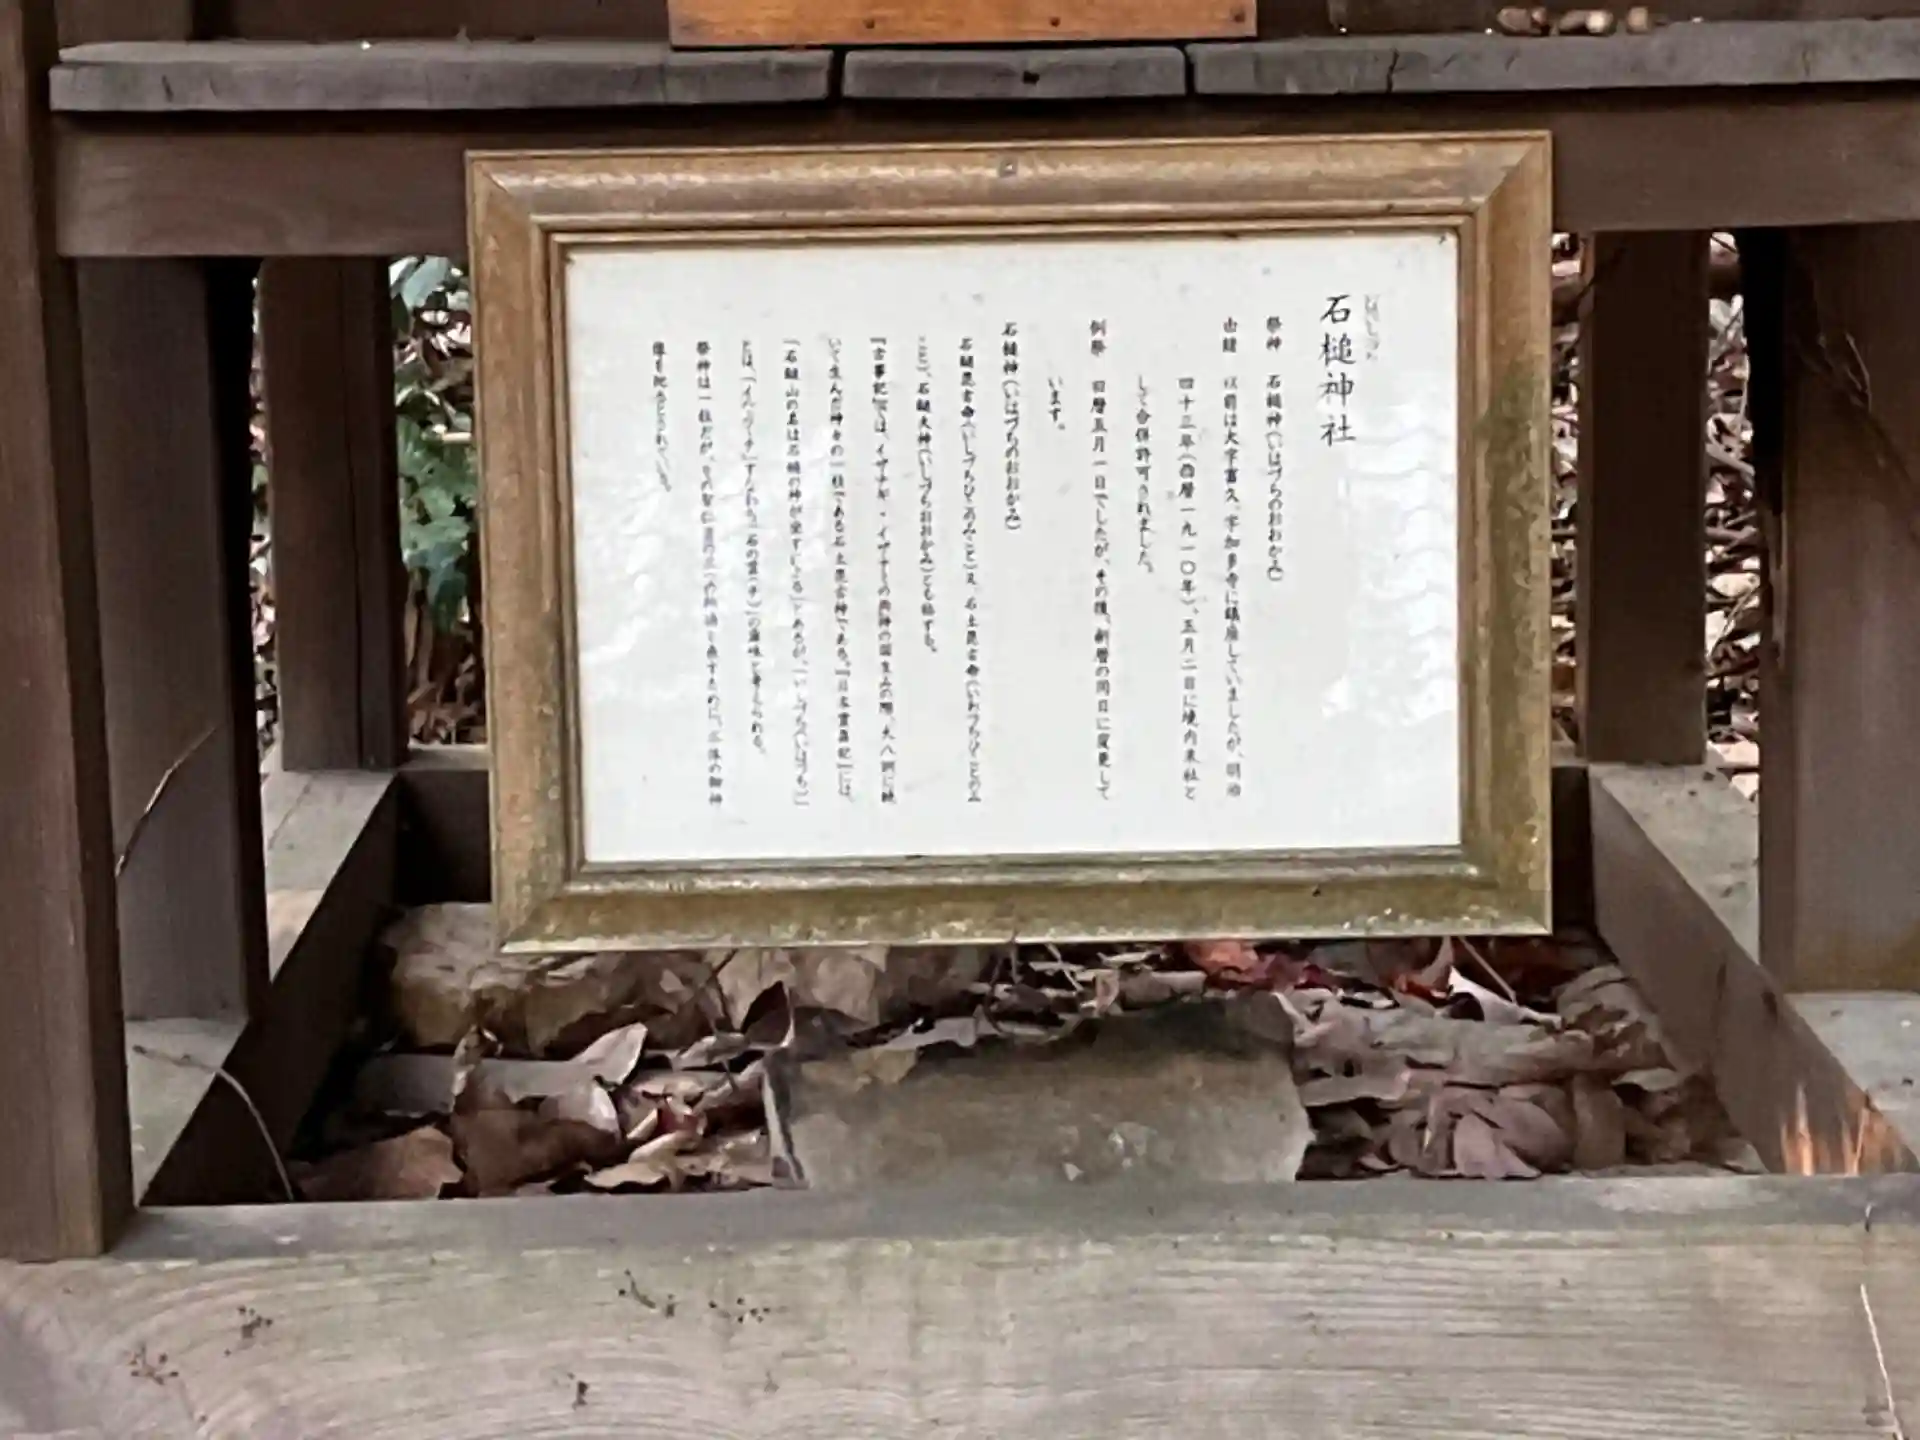 石槌神社
祭神 石槌神(いはづちのおおかみ)
由緒 以前は大字富久、字加多寺に鎮座していましたが、明治
四十三年(西暦一九一〇年)、五月二日に境内末社と
して合併許可されました。
例祭 旧暦五月一日でしたが、その後、新暦の同日に変更して
います。
石槌神(いはづちのおおかみ)
石鎚毘古命(いしづちひこのみこと)又、石土毘古命(いわつちびこのみ
こと)、石鎚大神(いしづちおおかみ)とも称する。
『古事記』では、イザナギ・イザナミの両神の国生みの際、大八洲に続
いて生んだ神々の一柱である石土毘古神である。『日本霊異記』には、
「石鎚山の名は石槌の神が坐すによる」とあるが、
とは、 すなわち「石の霊(チ)」の意味と考えられる。
祭神は一柱だが、その を表すために、三体の御神
像を祀るとされている。